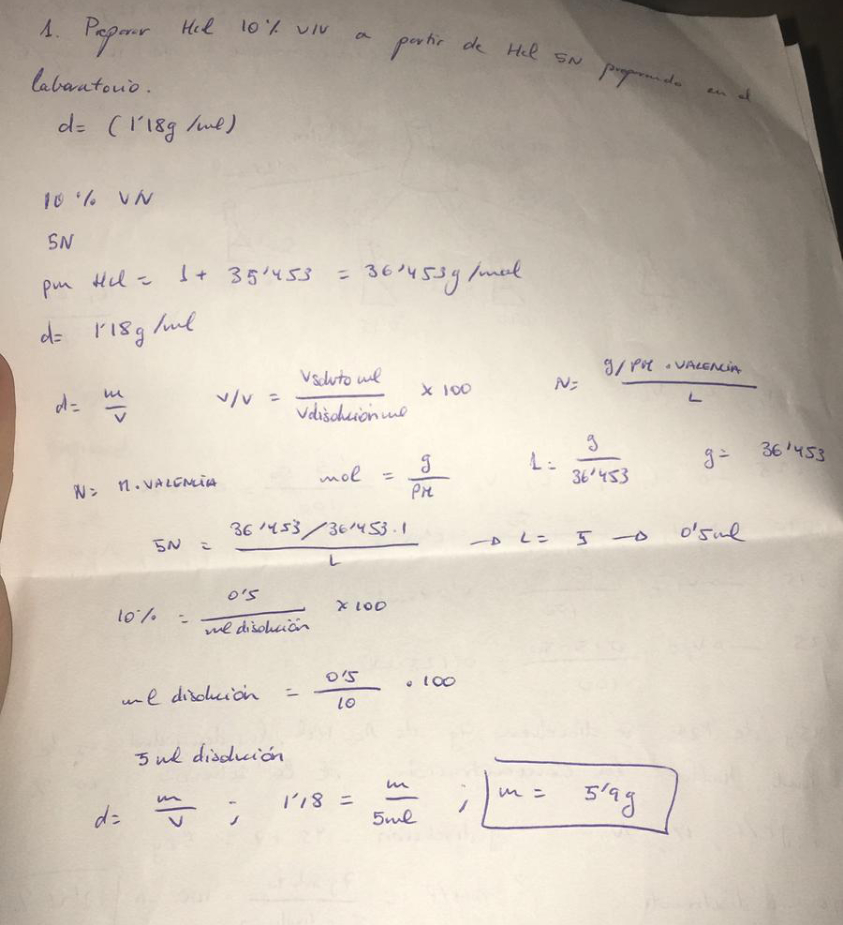 1. Preparar Hcl 10% V/V a partir de Hcl 5N preparado en el
laboratorio.
d= (1'18g/ml)
10 % V/V
5N
pm Hcl = 1 + 35'453 = 36'453g/mol
d= 1'18g/ml
d= m/V v/v = Vsoluto ml/Vdisolución ml x 100 N= g/PM . VALENCIA/L
N= M . VALENCIA mol = g/PM 1 = g/36'453 g= 36'453
5N = 36'453/36'453 . 1/L → L= 5 → 0'5ml
10% = 0'5/ml disolución x 100
ml disolución = 0'5/10 . 100
5 ml disolución
d= m/V ; 1'18 = m/5ml ; m = 5'9g